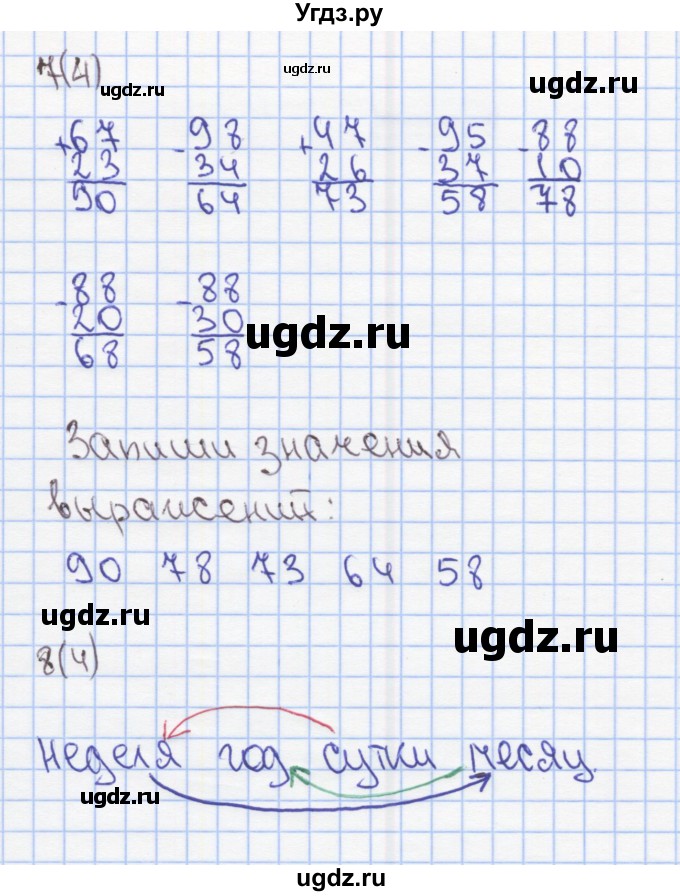 Угдз.ру
7(4)
ugdz.ru ugdz.ru ugdz.ru
+67 -98 +47 -95 -88
23 34 26 37 10
90 64 73 58 78
-88 -88
20 30
68 58
ugdz.ru
Запиши значения
выражений:
90 78 73 64 58
ugdz.ru ugdz.ru
8(4)
неделя год сутки месяц
ugdz.ru
ugdz.ru